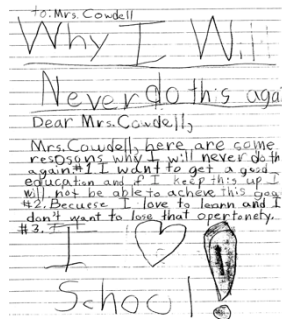 to: Mrs. Cowdell
Why I Will
Never do this aga
Dear Mrs. Cowdell,
Mrs. Cowdell, here are come
resposons why I will never do th
again #1 I want to get a good
education and if I keep this up I
will not be able to acheve this goa
#2. Becuese I love to leann and I
don't want to lose that opertonety.
#3.
I
School!